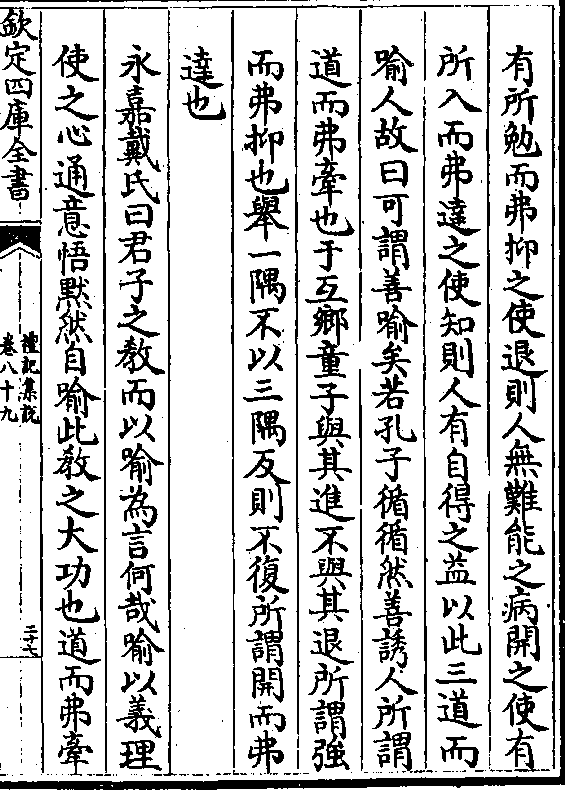 有所勉而弗抑之使退則人無難能之病開之使有
所入而弗達之使知則人有自得之益以此三道而
喻人故曰可謂善喻矣若孔子循循然善誘人所謂
道而弗牽也于互鄉童子與其進不與其退所謂強
而弗抑也舉一隅不以三隅反則不復所謂開而弗
達也
永嘉戴氏曰君子之教而以喻為言何哉喻以義理
使之心通意悟默然自喻此教之大功也道而弗牽
欽定四庫全書
禮記集說
卷八十九
二十七